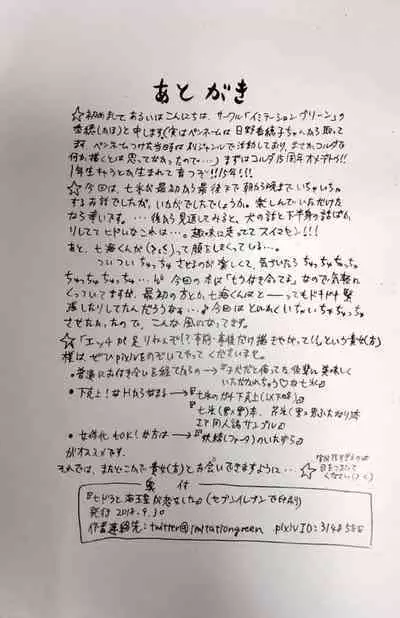 あとがき
☆初めまして、あるいはこんにちは、サークル「イミテーショングリーン」の
香穂(かほ)と申します(実はペンネームは日野香穂子ちゃんから取って
ます。ペンネームつけた当時は別ジャンルで活動しており、まさかコルダで
何か描くとは思ってなかったので…)まずはコルダ15周年オメデトウ!!
1年生だった子が生まれて育つぞ!!15年!!!
☆今回は、七 が最初から最後まで朝から晩までいちゃいちゃ
するお話でしたが、いかがでしたでしょうか。楽しんでいただけた
なら幸いです。…後から見返してみると、犬の話と下半身の話ばか
りしててヒドいなこれは…。趣味に走っててスイマセン!!!
あと、七海くんが って顔をしまくっている…。
ついついちゅっちゅさせるのが楽しくて、気づいたらちゅっちゅちゅっちゅ
ちゅっちゅちゅっちゅ… 今回の本は「もう付き合ってる」なので気軽に
くっついてますが、最初の方とか七海くんはと――ってもドキドキ緊
張したりしてたんだろうなぁ…♪今回はとにかくいちゃいちゃちゅっちゅ
させたかったので、こんな風になってます。
☆「エッチが足りねえぞ!事前・事後だけ描きやがって!」という貴女(方)
様は、ぜひpixivをのぞいてやってくださいませ。
・普通にお付き合いを経てからの→『子犬だと侮ってた後輩に美味しく
いただかれちゃう♡な七
・下克上!なHから始まる→『七 のガチ下克上(以下略)』
『七 本、 本
オフ同人誌サンプル』
・女体化もOK!な方は→『妖精(ファータ)のいたずら』
がオススメです。
それでは、またどこかで貴女(方)とお会いできますように…☆
奥付
『七 が恋をした』(セブンイレブンで印刷)
発行 2018.9.30
作者連絡先:twitter@imitationgreen pixivID:3148588